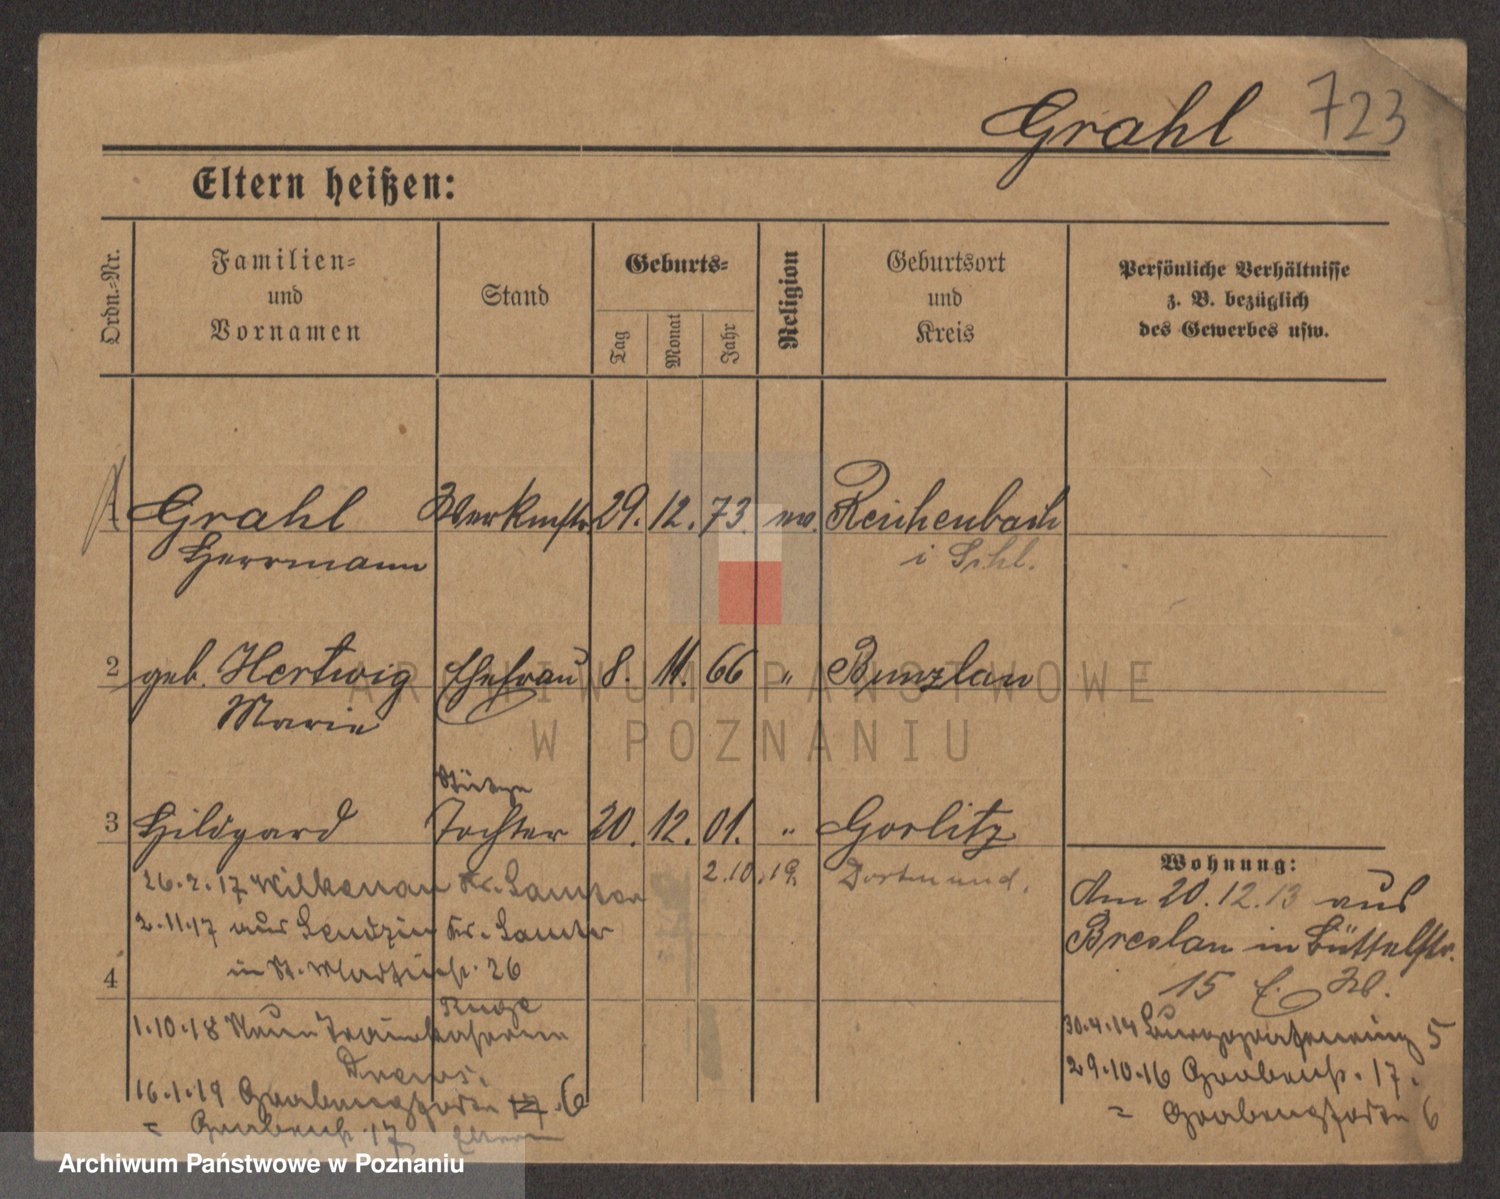 Grahl 723
Eltern heißen:
Ordn.-Nr.
Familien-
und
Vornamen
Stand
Geburts-
Tag
Monat
Jahr
Religion
Geburtsort
und
Kreis
Persönliche Verhältnisse
z. B. bezüglich
des Gewerbes usw.
1 Grahl Werkmstr. 29. 12. 73. ev. Reichenbach
Herrmann i Schl.
2 geb. Hertwig Ehefrau 8. 11. 66 " Bunzlau
Marie
Stütze
3 Hildgard Tochter 20. 12. 01. " Gorlitz
2.10.19. Dortmund.
26.2.17 Wilkenau Kr. Samter
2.11.17 aus Kr. Samter
in St. Martinstr. 26
4
1.10.18 Neue Trainkaserne
16.1.19 Grabenpforte 17. 6
= Grabenstr. 17 Eltern
Wohnung:
Am 20.12.13 aus
Breslau in Büttelstr.
15
30.4.14 5
29.10.16 Grabenstr. 17.
= Grabenpforte 6
ARCHIWUM PAŃSTWOWE
W POZNANIU
Archiwum Państwowe w Poznaniu